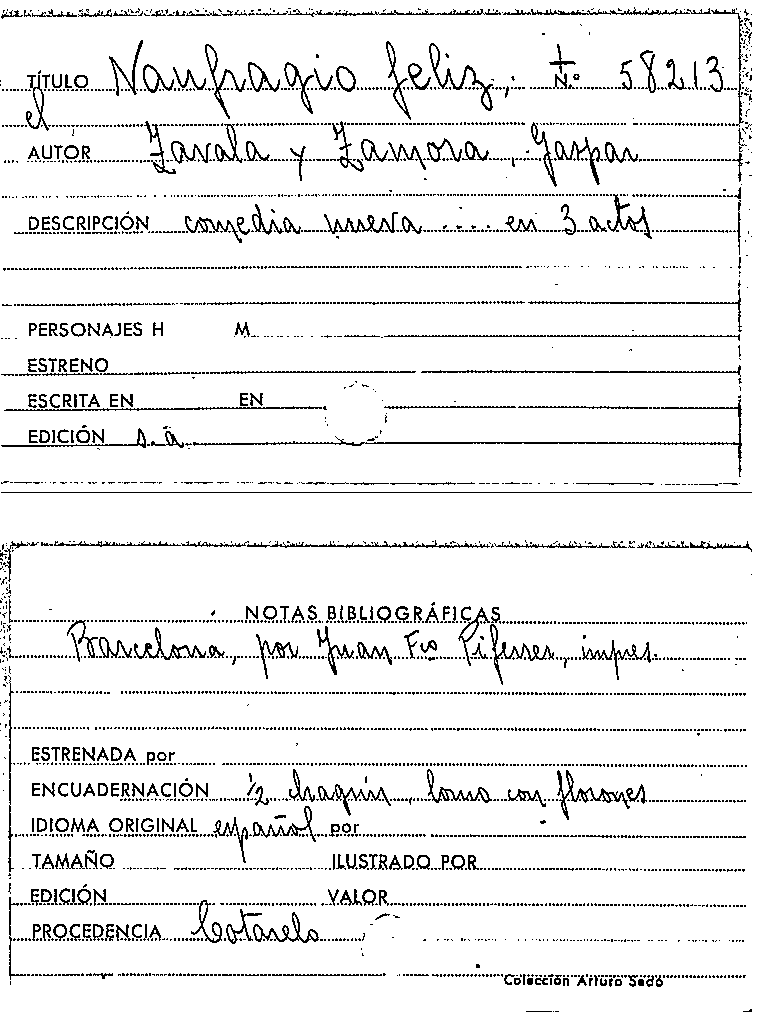 TÍTULO Naufragio feliz, N.º 58213
el
AUTOR Zavala y Zamora, Gaspar
DESCRIPCIÓN comedia nueva .... en 3 actos
PERSONAJES H M
ESTRENO
ESCRITA EN EN
EDICIÓN s.a.
NOTAS BIBLIOGRÁFICAS
Barcelona, por Juan Fco Piferrer, impres.
ESTRENADA por
ENCUADERNACIÓN 1/2 chagrín, lomo con florones
IDIOMA ORIGINAL español por
TAMAÑO ILUSTRADO POR
EDICIÓN VALOR
PROCEDENCIA Cotarelo
Colección Arturo Sedó